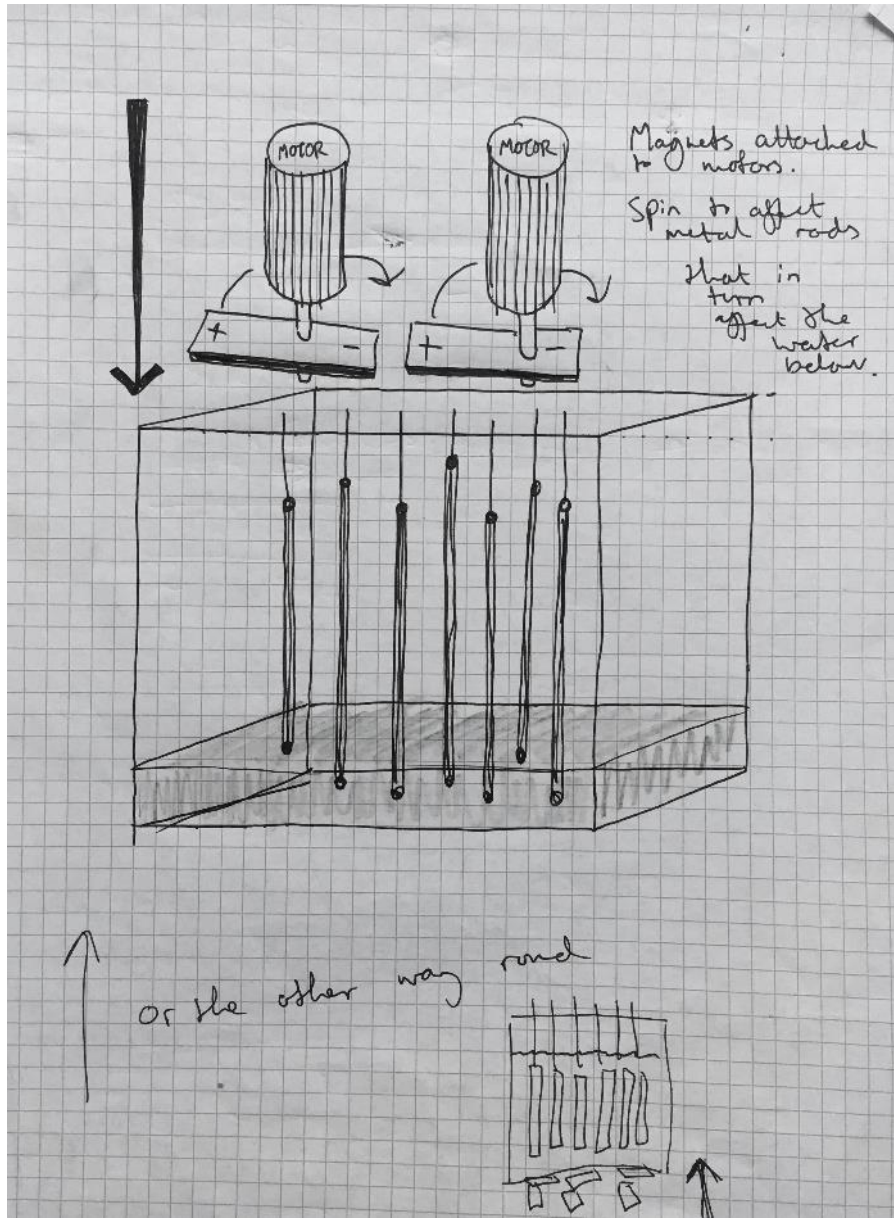 MOTOR
MOTOR
Magnets attached
to motors.
Spin to affect
metal rods
that in
turn
affect the
water
below.
+ -
+ -
or the other way round